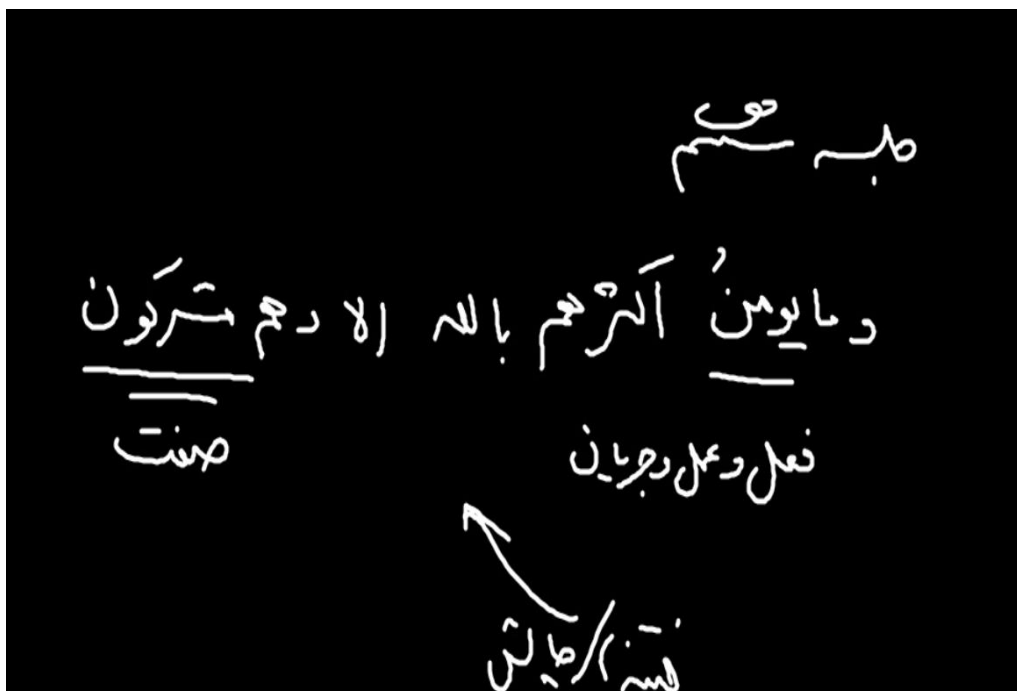 جلسه ششم
وما یومنُ أکثرهم بالله الا وهم مشرکون
فعل و عمل و جریان
صفت
فتنه / چالش